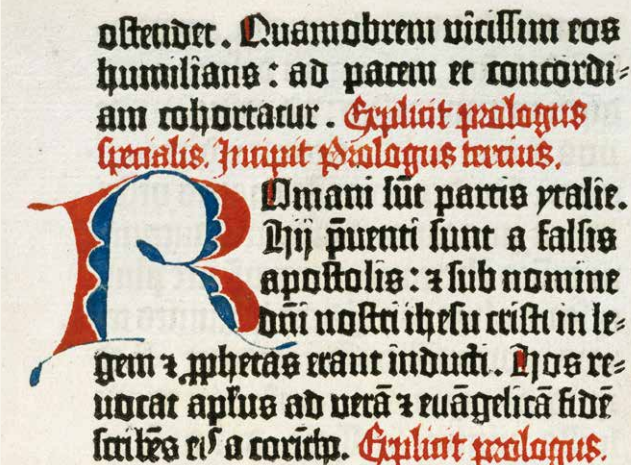 ostendet. Quamobrem vicissim eos
humilians: ad pacem et concordi⸗
am cohortatur. Explicit prologus
specialis. Incipit Prologus tercius.
ROmani sūt partis ytalie.
Hij p̄uenti sunt a falsis
apostolis: ⁊ sub nomine
dn̄i nostri ihesu cristi in le⸗
gem ⁊ ꝓphetas erant inducti. Hos re⸗
uocat apl̓us ad verā ⁊ euāgelicā fidē
scribēs eis a corītho. Explicit prologus.